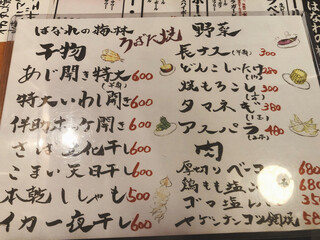 はなれの梅林 ろばた焼
干物
あじ開き特大(半身)600
特大いわし開き600
伴助ホッケ開き600
さば文化干し600
こまい天日干し600
本乾ししゃも500
イカ一夜干し600
野菜
長ナス(半身)300
どんこしいたけ
焼もろこし 300
タマネギ 380
アスパラ 480
肉
厚切りベーコン 680
鶏もも塩 680
ゴマ塩 350
ヤゲンナンコツ 580